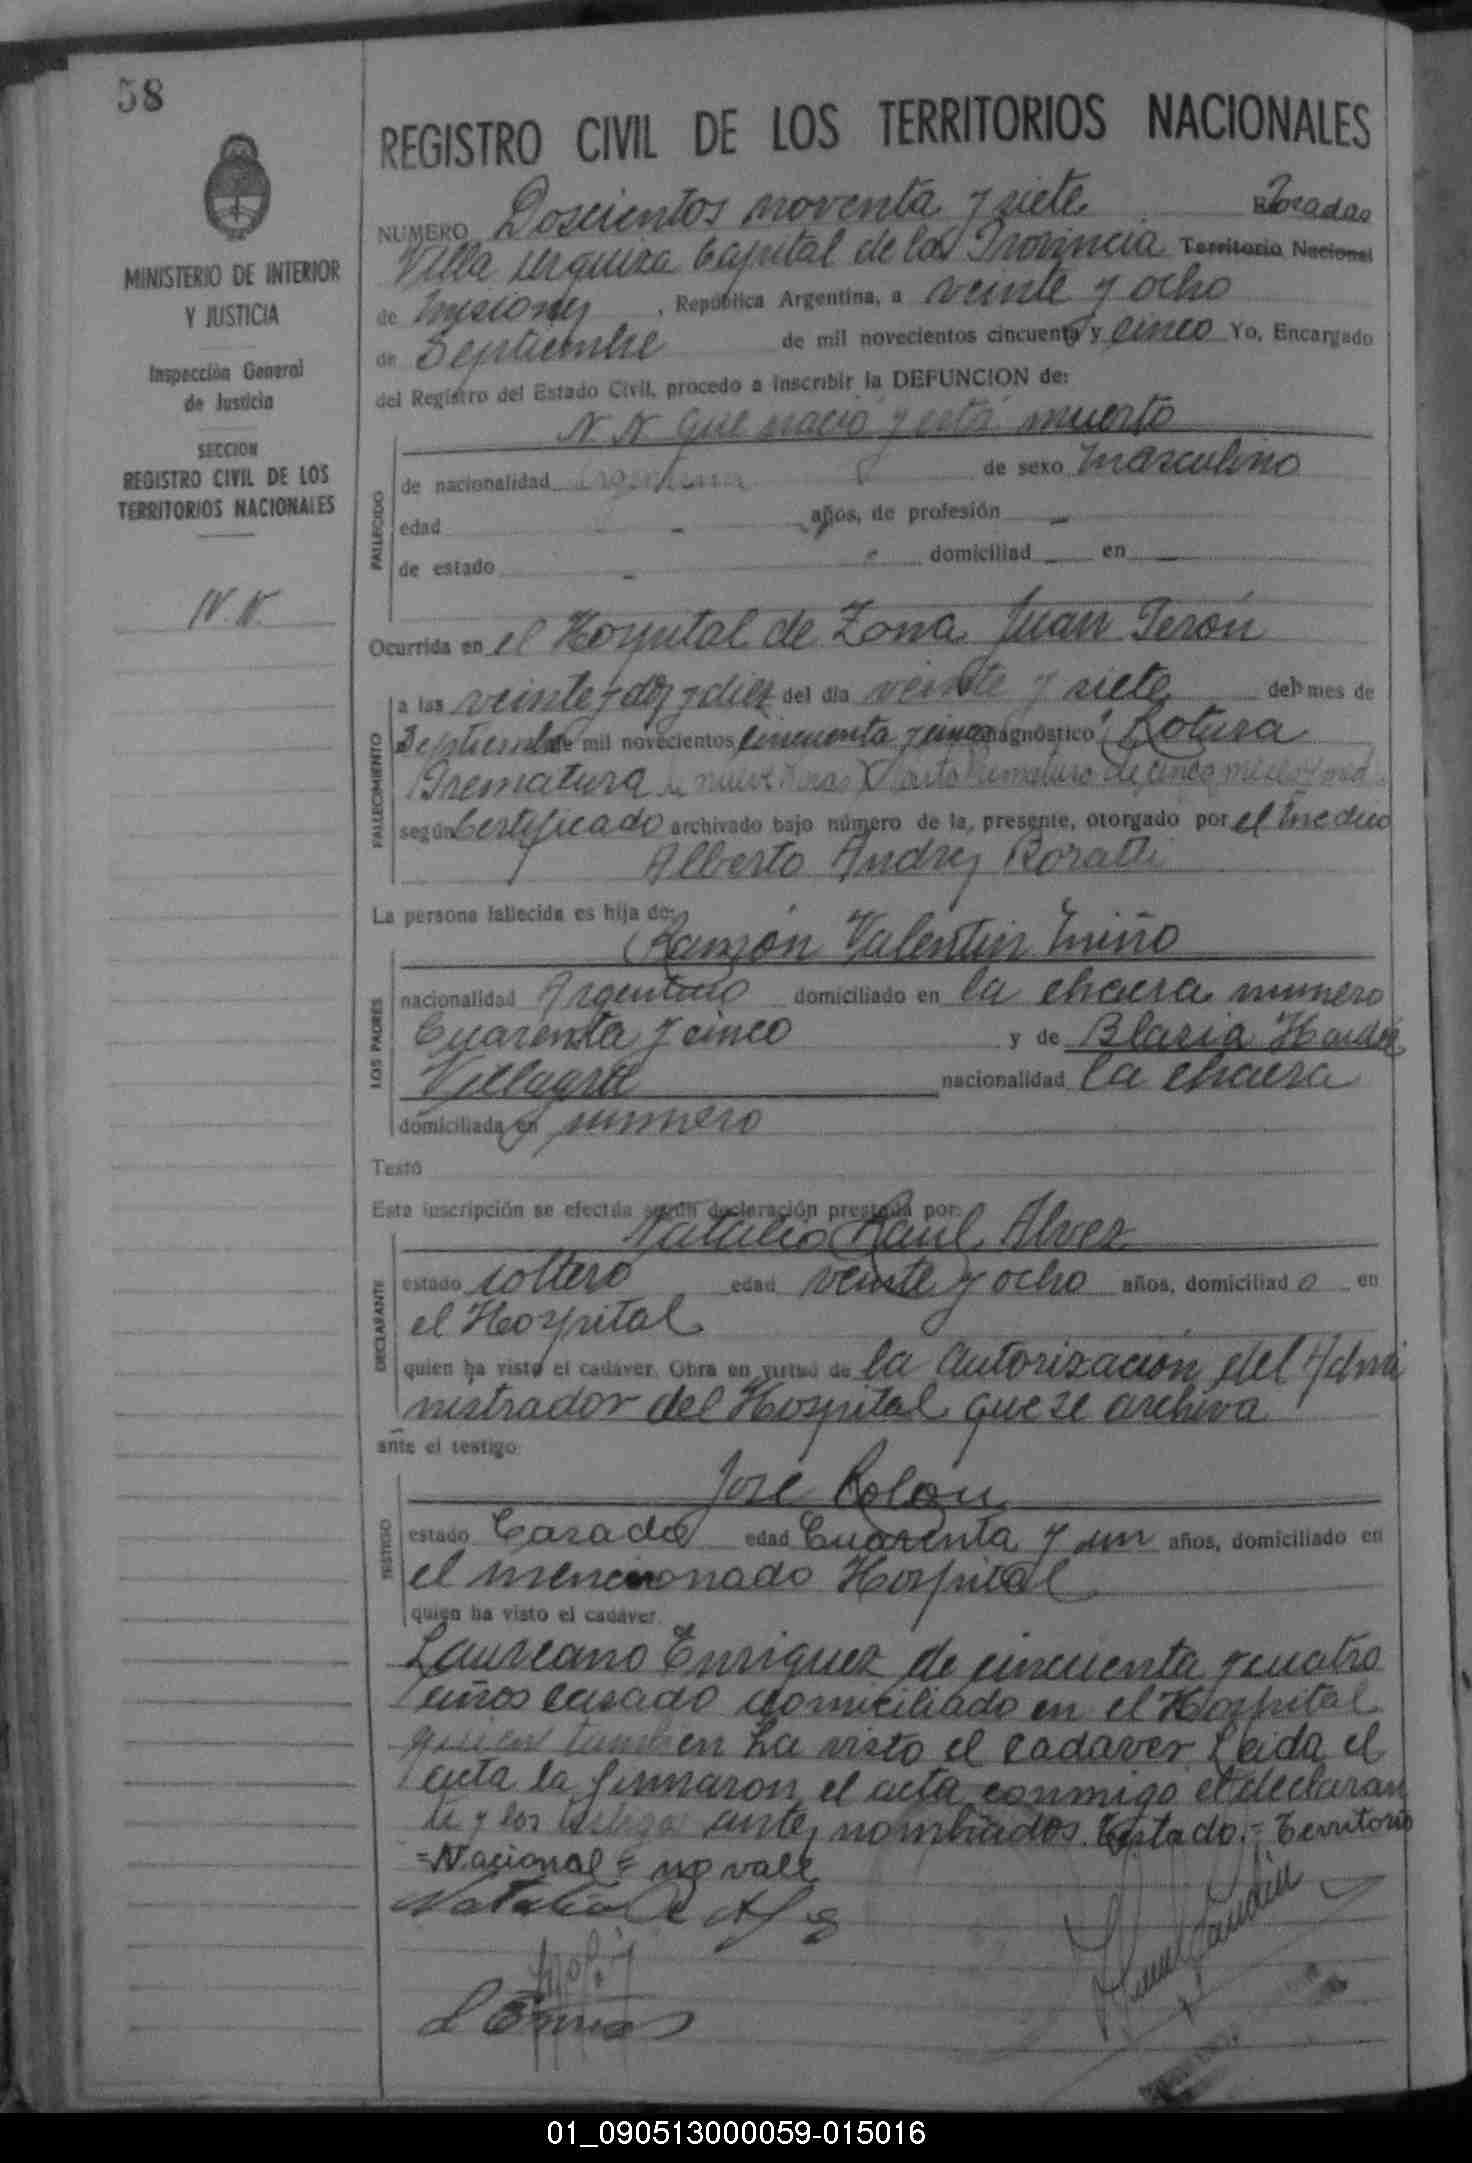 58
REGISTRO CIVIL DE LOS TERRITORIOS NACIONALES
MINISTERIO DE INTERIOR
Y JUSTICIA
Inspección General
de Justicia
SECCION
REGISTRO CIVIL DE LOS
TERRITORIOS NACIONALES
N.N.
NUMERO Doscientos noventa y siete Posadas
Villa urquiza Capital de la Provincia Territorio Nacional
de Misiones, República Argentina, a veinte y ocho
de Septiembre de mil novecientos cincuenta y cinco Yo, Encargado
del Registro del Estado Civil, procedo a inscribir la DEFUNCION de:
N N que nació y está muerto
FALLECIDO
de nacionalidad Argentina de sexo Masculino
edad - años, de profesión -
de estado - domiciliad - en -
Ocurrida en el Hospital de Zona Juan Perón
FALLECIMIENTO
a las veinte y dos y diez del día veinte y siete del mes de
Septiembre de mil novecientos cincuenta y cinco diagnóstico: Rotura
Prematura de nueve horas Parto Prematuro de cinco meses y
según Certificado archivado bajo número de la presente, otorgado por el Medico
Alberto Andres Roratti
La persona fallecida es hija de:
Ramón Valentin Miño
LOS PADRES
nacionalidad Argentino domiciliado en la chacra numero
Cuarenta y cinco y de Blasia
Villagra nacionalidad la chacra
domiciliada en numero
Testó
Esta inscripción se efectúa según declaración prestada por:
Natalio Raul Alvez
DECLARANTE
estado soltero edad veinte y ocho años, domiciliad o en
el Hospital
quien ha visto el cadáver. Obra en virtud de la autorización del Admi
nistrador del Hospital que se archiva
ante el testigo
José Colon
TESTIGO
estado Casado edad Cuarenta y un años, domiciliado en
el mencionado Hospital
quien ha visto el cadáver.
Laureano Enriquez de cincuenta y cuatro
años casado domiciliado en el Hospital
quien tambien ha visto el cadaver. Leida el
acta la firmaron el acta conmigo el declaran
te y los testigos antes nombrados. Testado:= Territorio
=Nacional= no vale
01_090513000059-015016